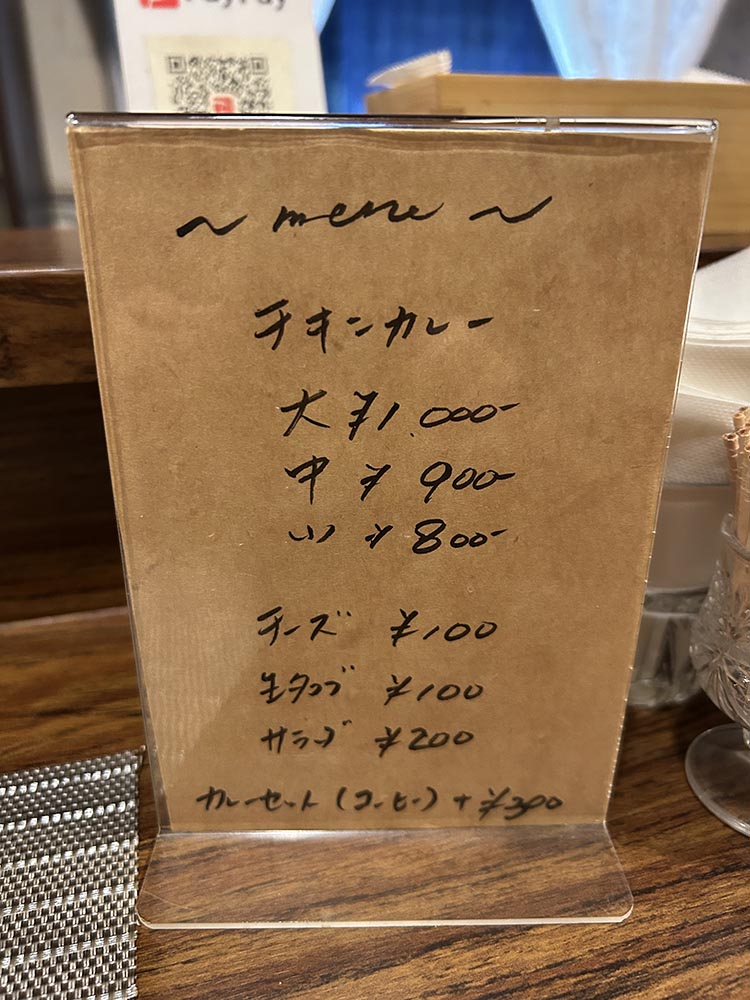 PayPay
~ menu ~
チキンカレー
大 ¥1,000-
中 ¥ 900-
小 ¥ 800-
チーズ ¥100
生タマゴ ¥100
サラダ ¥200
カレーセット(コーヒー)+¥300